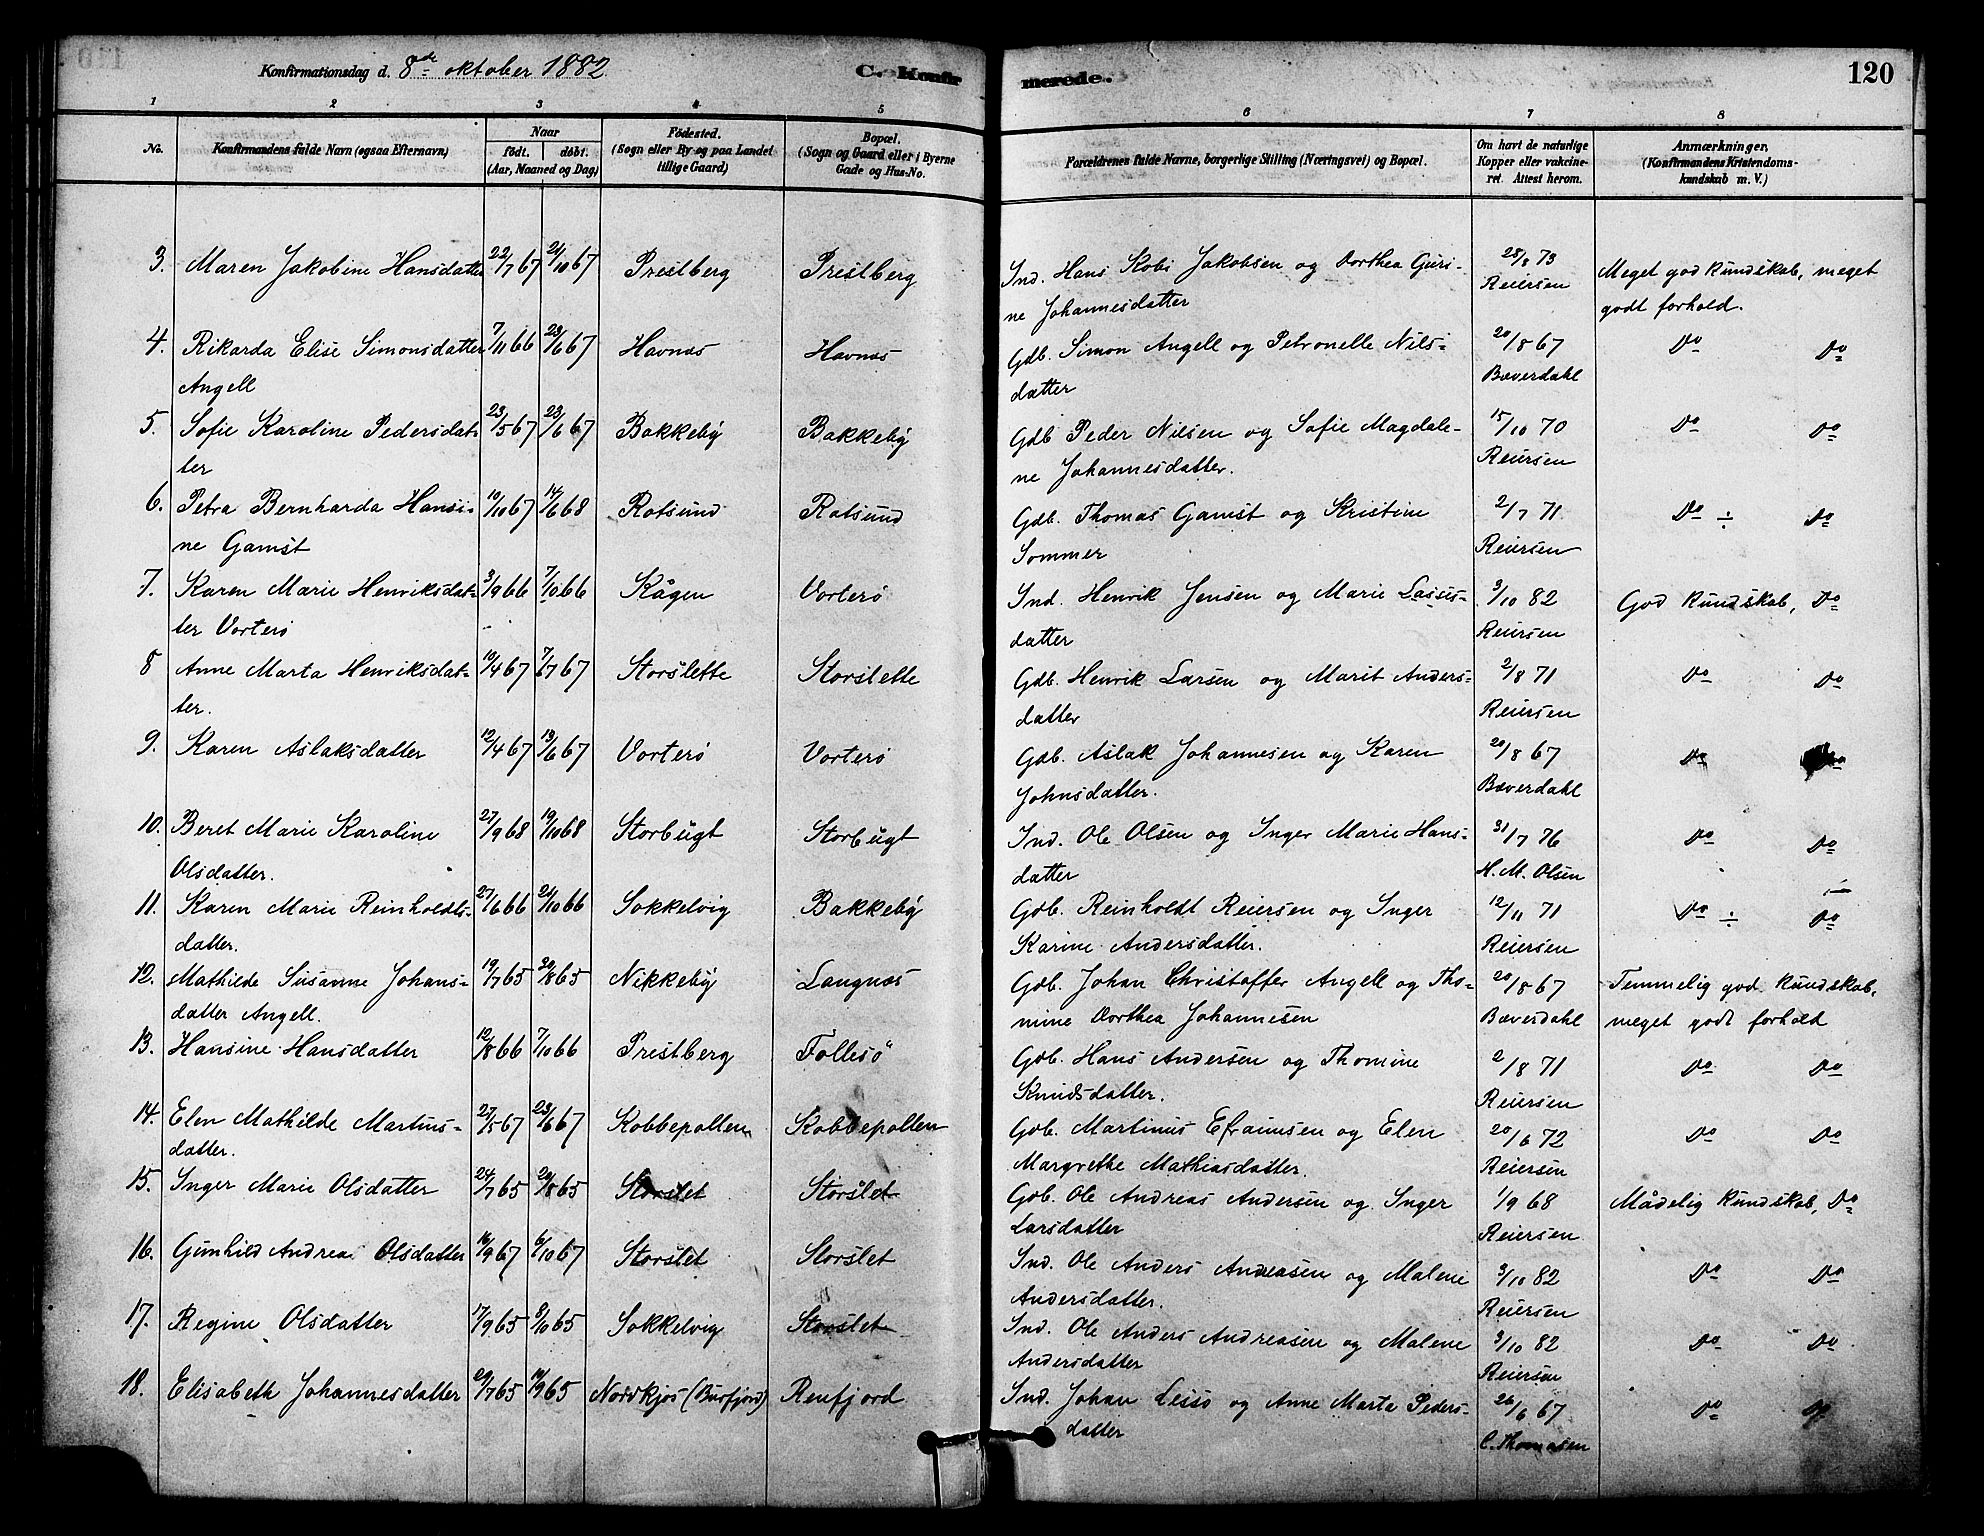 Konfirmationsdag d. 8de oktober 1882
C. Konfirmerede.
120
1 2 3 4 5 6 7 8
No.
Konfirmandens fulde Navn (ogsaa Efternavn)
Naar
født. døbt.
(Aar, Maaned og Dag)
Fødested.
(Sogn eller By og paa Landet
tillige Gaard)
Bopæl.
(Sogn og Gaard eller i Byerne
Gade og Hus-No.
Forældrenes fulde Navne, borgerlige Stilling (Næringsvei) og Bopæl.
Om havt de naturlige
Kopper eller vakcine-
ret. Attest herom.
Anmærkninger,
(Konfirmandens Kristendoms-
kundskab m. V.)
3. Maren Jakobine Hansdatter 22/7 67 21/10 67 Prestberg Prestberg Ind. Hans Kobi Jakobsen og Dorthea Guri- 28/8 73 Meget god kundskab, meget
ne Johannesdatter Reiersen godt forhold.
4. Rikarda Elise Simonsdatter 7/11 66 23/6 67 Havnæs Havnæs Gdb. Simon Angell og Petronelle Nils- 20/8 67 Do Do
Angell datter Bæverdahl
5. Sofie Karoline Pedersdat- 23/5 67 23/6 67 Bakkeby Bakkeby Gdb Peder Nilsen og Sofie Magdale- 15/10 70 Do Do
ter ne Johannesdatter. Reiersen
6. Petra Bernharda Hansi- 10/10 67 14/6 68 Rotsund Rotsund Gdb. Thomas Gamst og Kristine 2/7 71 Do ÷ Do
ne Gamst Sommer Reiersen
7. Karen Marie Henriksdat- 3/9 66 7/10 66 Kågen Vorterø Ind. Henrik Jensen og Marie Lassis- 3/10 82 God kundskab, Do
ter Vorterö datter Reiersen
8 Anne Marta Henriksdat- 10/4 67 7/7 67 Storslette Storslette Gdb. Henrik Larsen og Marit Anders- 2/8 71 Do Do
ter. datter Reiersen
9. Karen Aslaksdatter 12/4 67 13/6 67 Vorterö Vorterö Gdb. Aslak Johannesen og Karen 20/8 67 Do
Johnsdatter. Bæverdahl
10. Beret Marie Karoline 27/9 68 19/10 68 Storbugt Storbugt Ind. Ole Olsen og Inger Marie Hans- 31/7 76 Do Do
Olsdatter. datter H. M. Olsen
11. Karen Marie Reinholdts- 27/6 66 21/10 66 Sokkelvig Bakkeby Gdb. Reinholdt Reiersen og Inger 12/11 71 Do ÷ Do
datter. Karine Andersdatter. Reiersen
12. Mathilde Susanne Johans- 19/7 65 20/8 65 Nikkeby Langnæs Gdb. Johan Christoffer Angell og Tho- 20/8 67 Temmelig god kundskab,
datter Angell. mine Dorthea Johannesen Bæverdahl meget godt forhold
13. Hansine Hansdatter 12/8 66 7/10 66 Prestberg Follesö Gdb. Hans Andersen og Thomine 2/8 71 Do Do
Knudsdatter. Reiersen
14. Elen Mathilde Martins- 27/5 67 23/6 67 Kobbepollen Kobbepollen Gdb. Martinus Efraimsen og Elen 20/6 72 Do Do
datter. Margrethe Mathiasdatter. Reiersen
15. Inger Marie Olsdatter 24/7 65 20/8 65 Storslet Storslet Gdb. Ole Andreas Andersen og Inger 1/9 68 Mådelig kundskab, Do
Larsdatter Reiersen
16. Gunhild Andrea Olsdatter 16/9 67 6/10 67 Storslet Storslet Ind. Ole Anders Andreasen og Malene 3/10 82 Do Do
Andersdatter. Reiersen
17. Regine Olsdatter 17/9 65 8/10 65 Sokkelvig Storslet Ind. Ole Anders Andreasen og Malene 3/10 82 Do Do
Andersdatter Reiersen
18. Elisabeth Johannesdatter 29/7 65 17/9 65 Nordkjos (Burfjord) Reufjord Ind. Johan Lessø og Anne Marta Peders- 26/6 67 Do Do
datter C. Thomasen